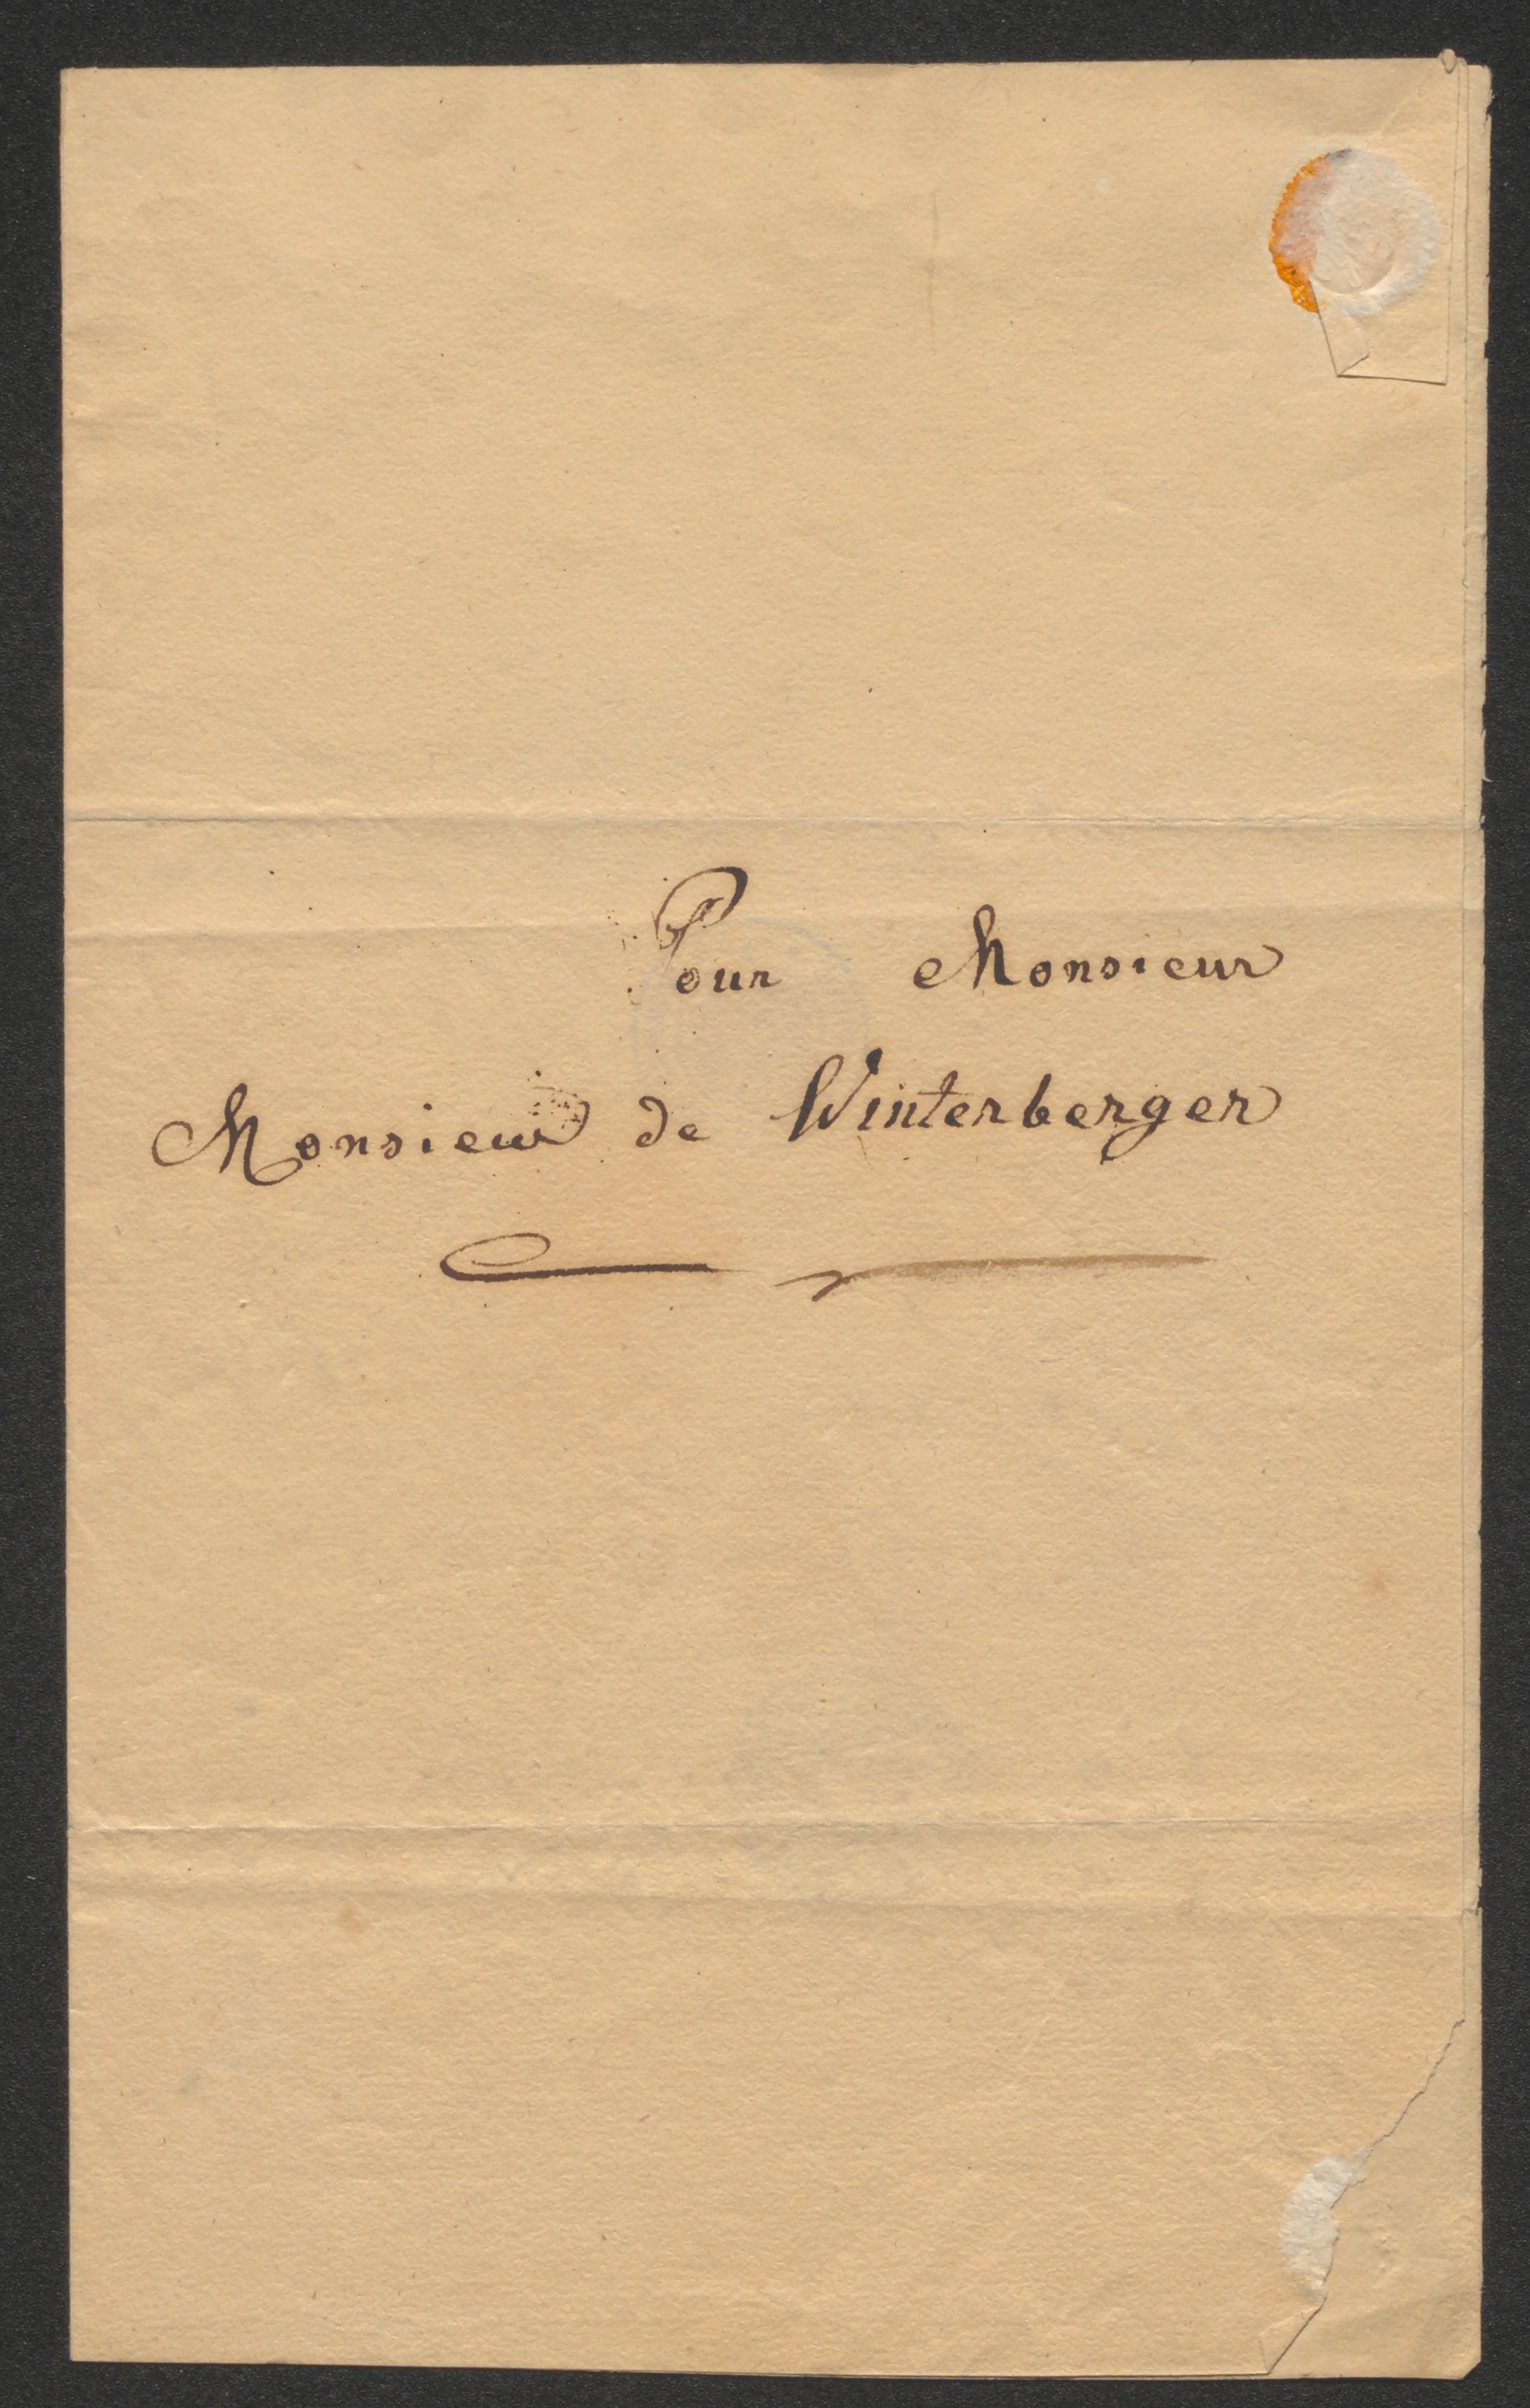 Pour Monsieur
Monsieur de Winterberger